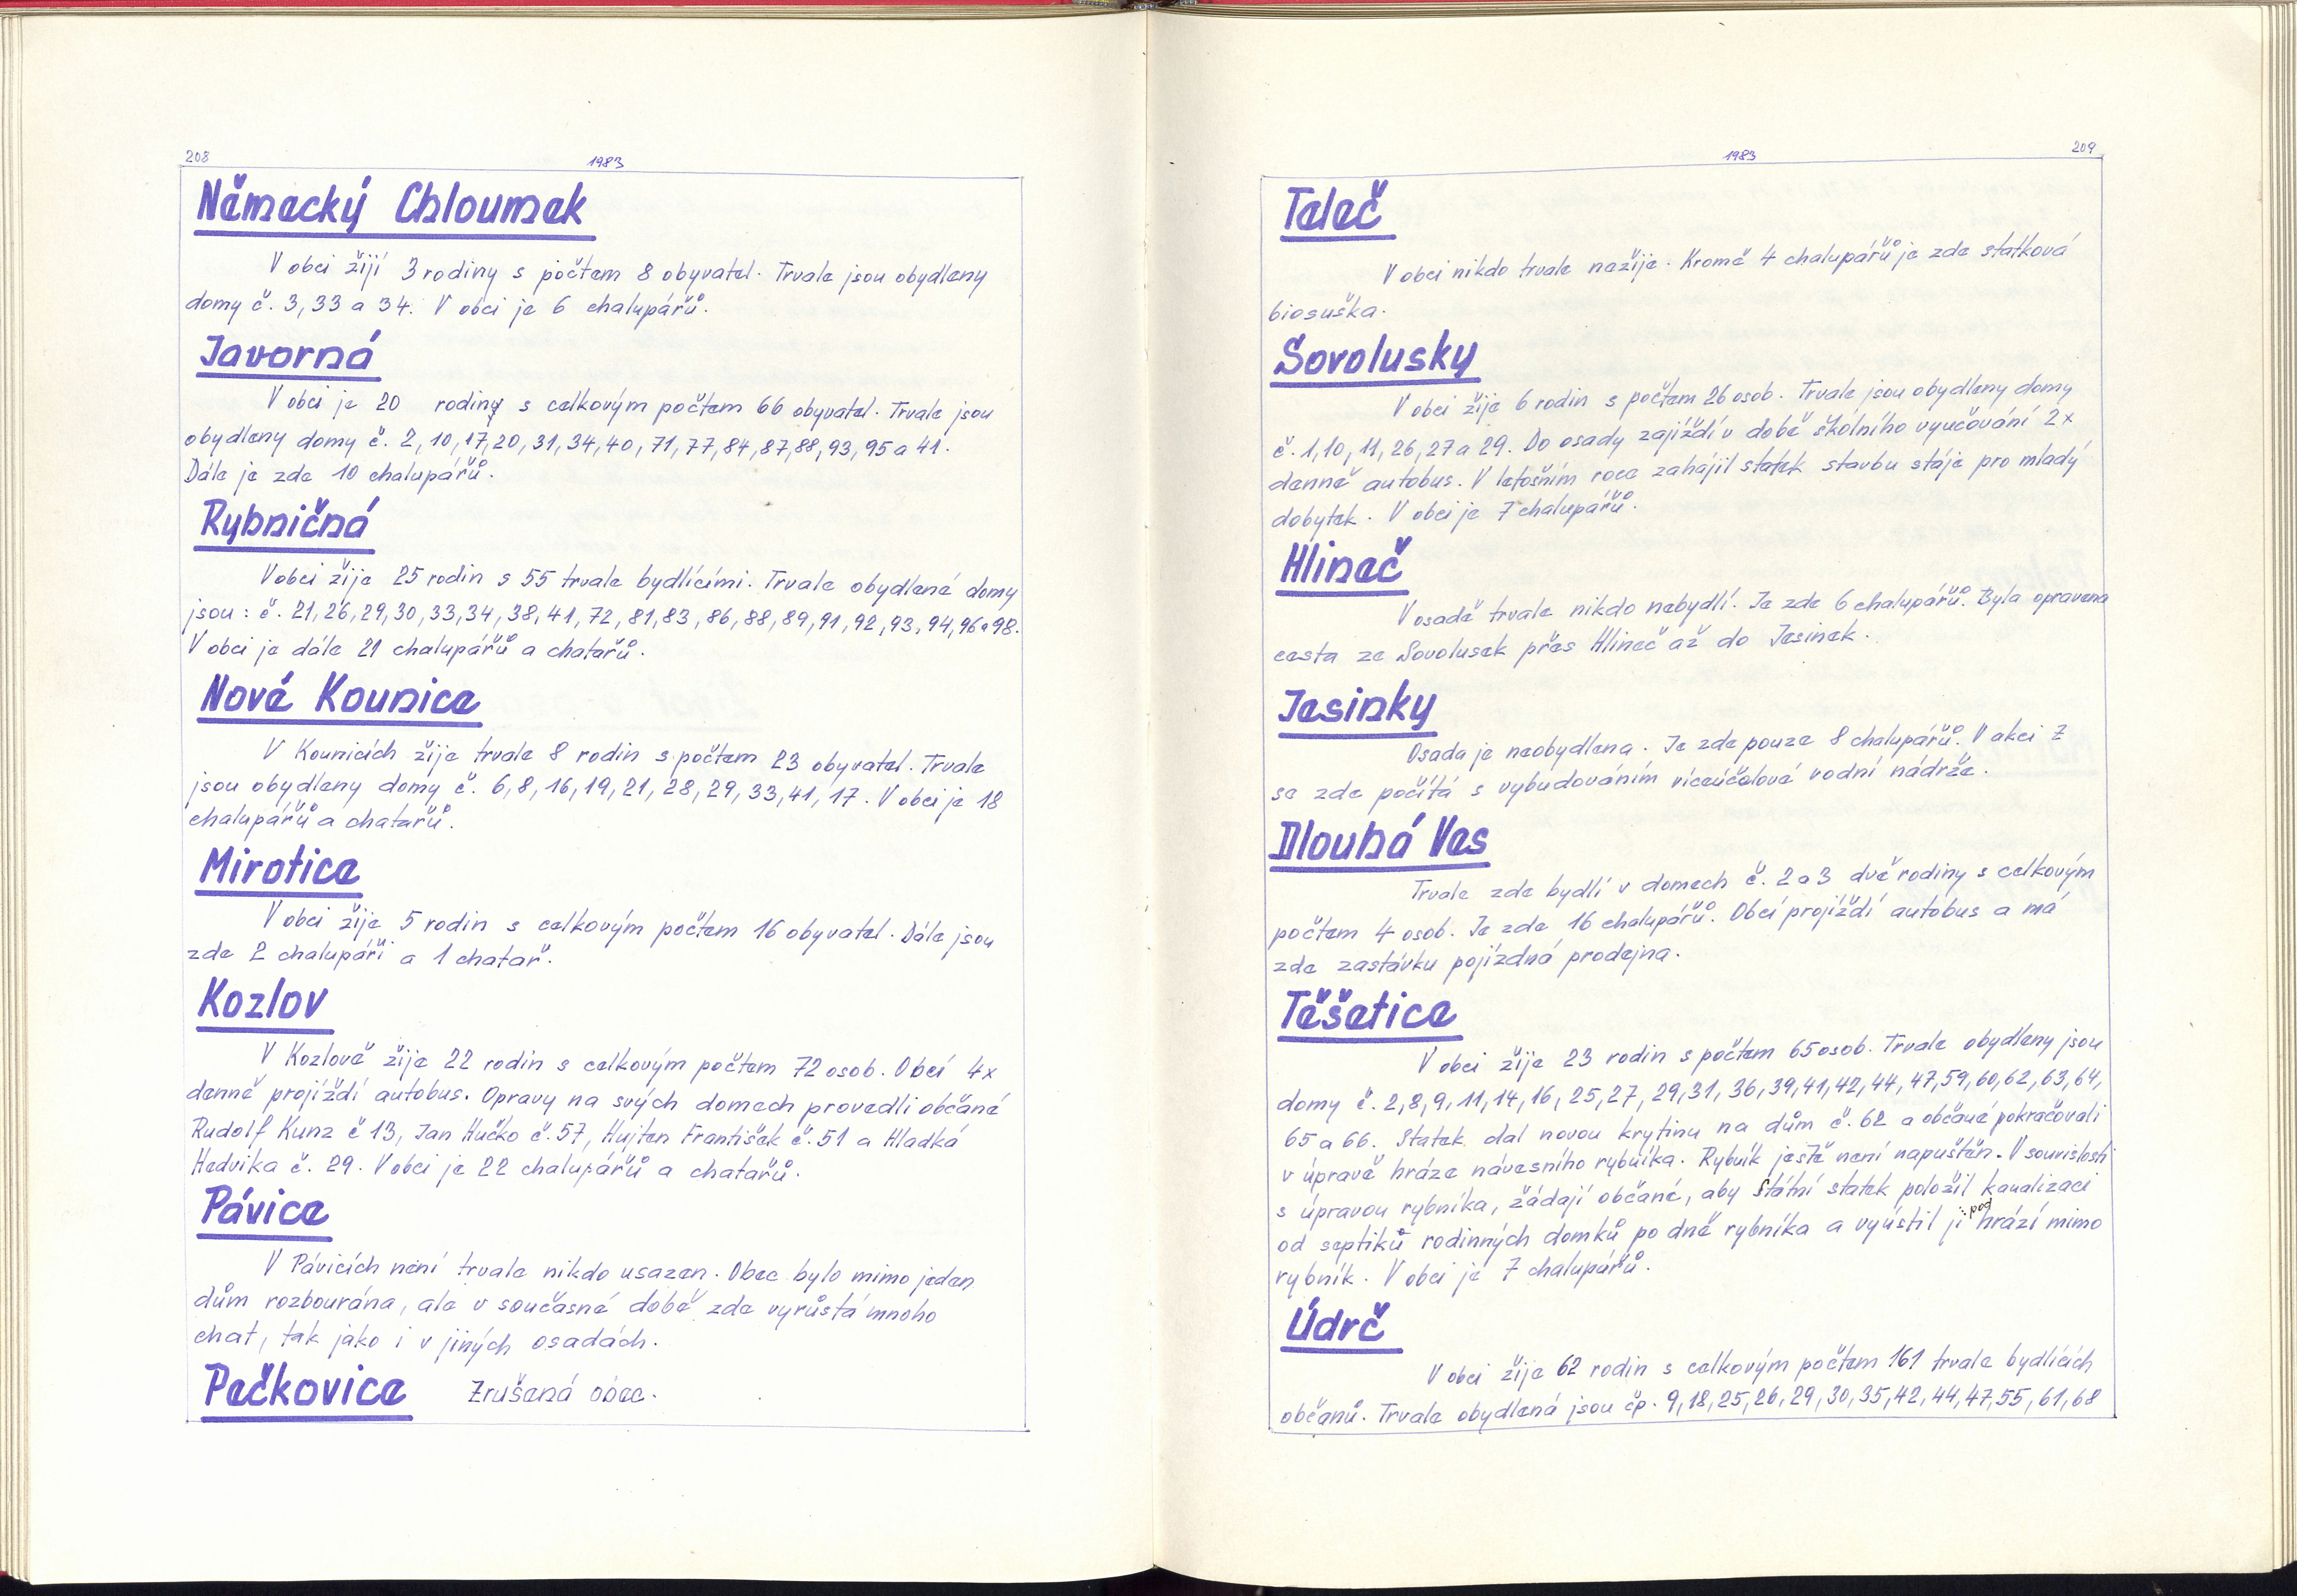 208
1983
Německý Chloumek
V obci žijí 3 rodiny s počtem 8 obyvatel. Trvale jsou obydleny
domy č. 3, 33 a 34. V obci je 6 chalupářů.
Javorná
V obci je 20 rodiny s celkovým počtem 66 obyvatel. Trvale jsou
obydleny domy č. 2, 10, 17, 20, 31, 34, 40, 71, 77, 84, 87, 88, 93, 95 a 41.
Dále je zde 10 chalupářů.
Rybničná
V obci žije 25 rodin s 55 trvale bydlícími. Trvale obydlené domy
jsou: č. 21, 26, 29, 30, 33, 34, 38, 41, 72, 81, 83, 86, 88, 89, 91, 92, 93, 94, 96 a 98.
V obci je dále 21 chalupářů a chatařů.
Nové Kounice
V Kounicích žije trvale 8 rodin s počtem 23 obyvatel. Trvale
jsou obydleny domy č. 6, 8, 16, 19, 21, 28, 29, 33, 41, 17. V obci je 18
chalupářů a chatařů.
Mirotice
V obci žije 5 rodin s celkovým počtem 16 obyvatel. Dále jsou
zde 2 chalupáři a 1 chatař.
Kozlov
V Kozlově žije 22 rodin s celkovým počtem 72 osob. Obcí 4x
denně projíždí autobus. Opravy na svých domech provedli občané
Rudolf Kunz č 13, Jan Hučko č. 57, Hujten František č. 51 a Hladká
Hedvika č. 29. V obci je 22 chalupářů a chatařů.
Pávice
V Pávicích není trvale nikdo usazen. Obec bylo mimo jeden
dům rozbourána, ale v současné době zde vyrůstá mnoho
chat, tak jako i v jiných osadách.
Pečkovice Zrušená obec.
1983
209
Teleč
V obci nikdo trvale nežije. Kromě 4 chalupářů je zde statková
biosuška.
Sovolusky
V obci žije 6 rodin s počtem 26 osob. Trvale jsou obydleny domy
č. 1, 10, 11, 26, 27 a 29. Do osady zajíždí v době školního vyučování 2x
denně autobus. V letošním roce zahájil statek stavbu stáje pro mladý
dobytek. V obci je 7 chalupářů.
Hlineč
V osadě trvale nikdo nebydlí. Je zde 6 chalupářů. Byla opravena
cesta ze Sovolusek přes Hlineč až do Jesinek.
Jesinky
Osada je neobydlena. Je zde pouze 8 chalupářů. V akci Z
se zde počítá s vybudováním víceúčelové vodní nádrže.
Dlouhá Ves
Trvale zde bydlí v domech č. 2 a 3 dvě rodiny s celkovým
počtem 4 osob. Je zde 16 chalupářů. Obcí projíždí autobus a má
zde zastávku pojízdná prodejna.
Těšetice
V obci žije 23 rodin s počtem 65 osob. Trvale obydleny jsou
domy č. 2, 8, 9, 11, 14, 16, 25, 27, 29, 31, 36, 39, 41, 42, 44, 47, 59, 60, 62, 63, 64,
65 a 66. Statek dal novou krytinu na dům č. 62 a občané pokračovali
v úpravě hráze návesního rybníka. Rybník ještě není napuštěn. V souvislosti
s úpravou rybníka, žádají občané, aby Státní statek položil kanalizaci
od septiků rodinných domků po dně rybníka a vyústil ji pod hrází mimo
rybník. V obci je 7 chalupářů.
Údrč
V obci žije 62 rodin s celkovým počtem 161 trvale bydlících
občanů. Trvale obydlená jsou čp. 9, 18, 25, 26, 29, 30, 35, 42, 44, 47, 55, 61, 68